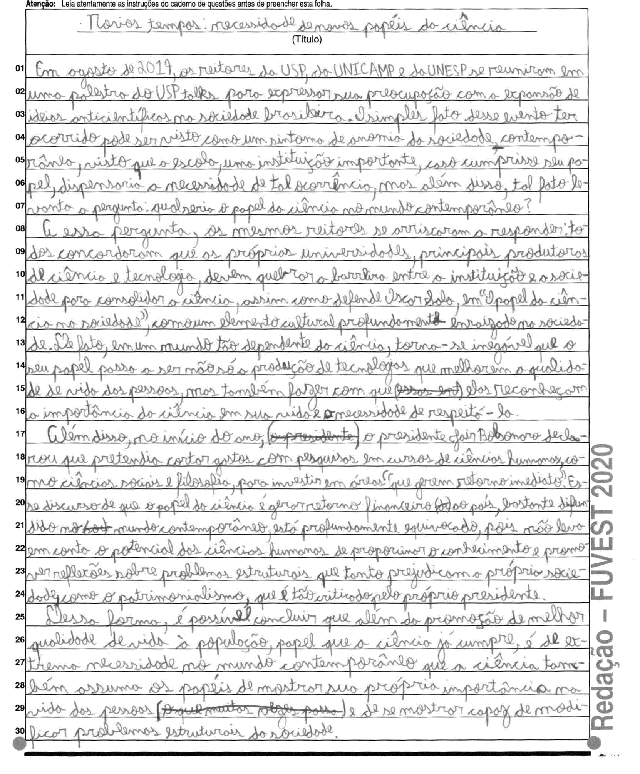 Atenção: Leia atentamente as instruções do caderno de questões antes de preencher esta folha.
Novos tempos: necessidade de novos papéis da ciência
(Título)
01 Em agosto de 2019, os reitores da USP, da UNICAMP e da UNESP se reuniram em
02 uma palestra do USP talks para expressar sua preocupação com a expansão de
03 ideias anticientíficas na sociedade brasileira. O simples fato desse evento ter
04 ocorrido pode ser visto como um sintoma de anomia da sociedade contempo-
05 rânea, visto que a escola, uma instituição importante, caso cumprisse seu pa-
06 pel, dispensaria a necessidade de tal ocorrência, mas além disso, tal fato le-
07 vanta a pergunta: qual seria o papel da ciência no mundo contemporâneo?
08 A essa pergunta, os mesmos reitores se arriscaram a responder: to-
09 dos concordaram que as próprias universidades, principais produtoras
10 de ciência e tecnologia, devem quebrar a barreira entre a instituição e a socie-
11 dade para consolidar a ciência, assim como defende Oscar Sala, em "O papel da ciên-
12 cia na sociedade", como um elemento cultural profundamente enraizado na socieda-
13 de. De fato, em um mundo tão dependente da ciência, torna-se inegável que o
14 seu papel passa a ser não só a produção de tecnologias que melhorem a qualida-
15 de de vida das pessoas, mas também fazer com que elas reconheçam
16 a importância da ciência em sua vida e a necessidade de respeitá-la.
17 Além disso, no início do ano, (o presidente) o presidente Jair Bolsonaro decla-
18 rou que pretendia cortar gastos com pesquisas em cursos de ciências humanas, co-
19 mo ciências sociais e filosofia, para investir em áreas "que gerem retorno imediato". Es-
20 se discurso de que o papel da ciência é gerar retorno financeiro ao país, bastante difun-
21 dido no mundo contemporâneo, está profundamente equivocado, pois não leva
22 em conta o potencial das ciências humanas de proporcionar o conhecimento e promo-
23 ver reflexões sobre problemas estruturais que tanto prejudicam a própria socie-
24 dade, como o patrimonialismo, que é tão criticado pelo próprio presidente.
25 Dessa forma, é possível concluir que além da promoção de melhor
26 qualidade de vida à população, papel que a ciência já cumpre, é de ex-
27 trema necessidade no mundo contemporâneo que a ciência tam-
28 bém assuma os papéis de mostrar sua própria importância na
29 vida das pessoas (o que muitas vezes passa) e de se mostrar capaz de modi-
30 ficar problemas estruturais da sociedade.
Redação – FUVEST 2020